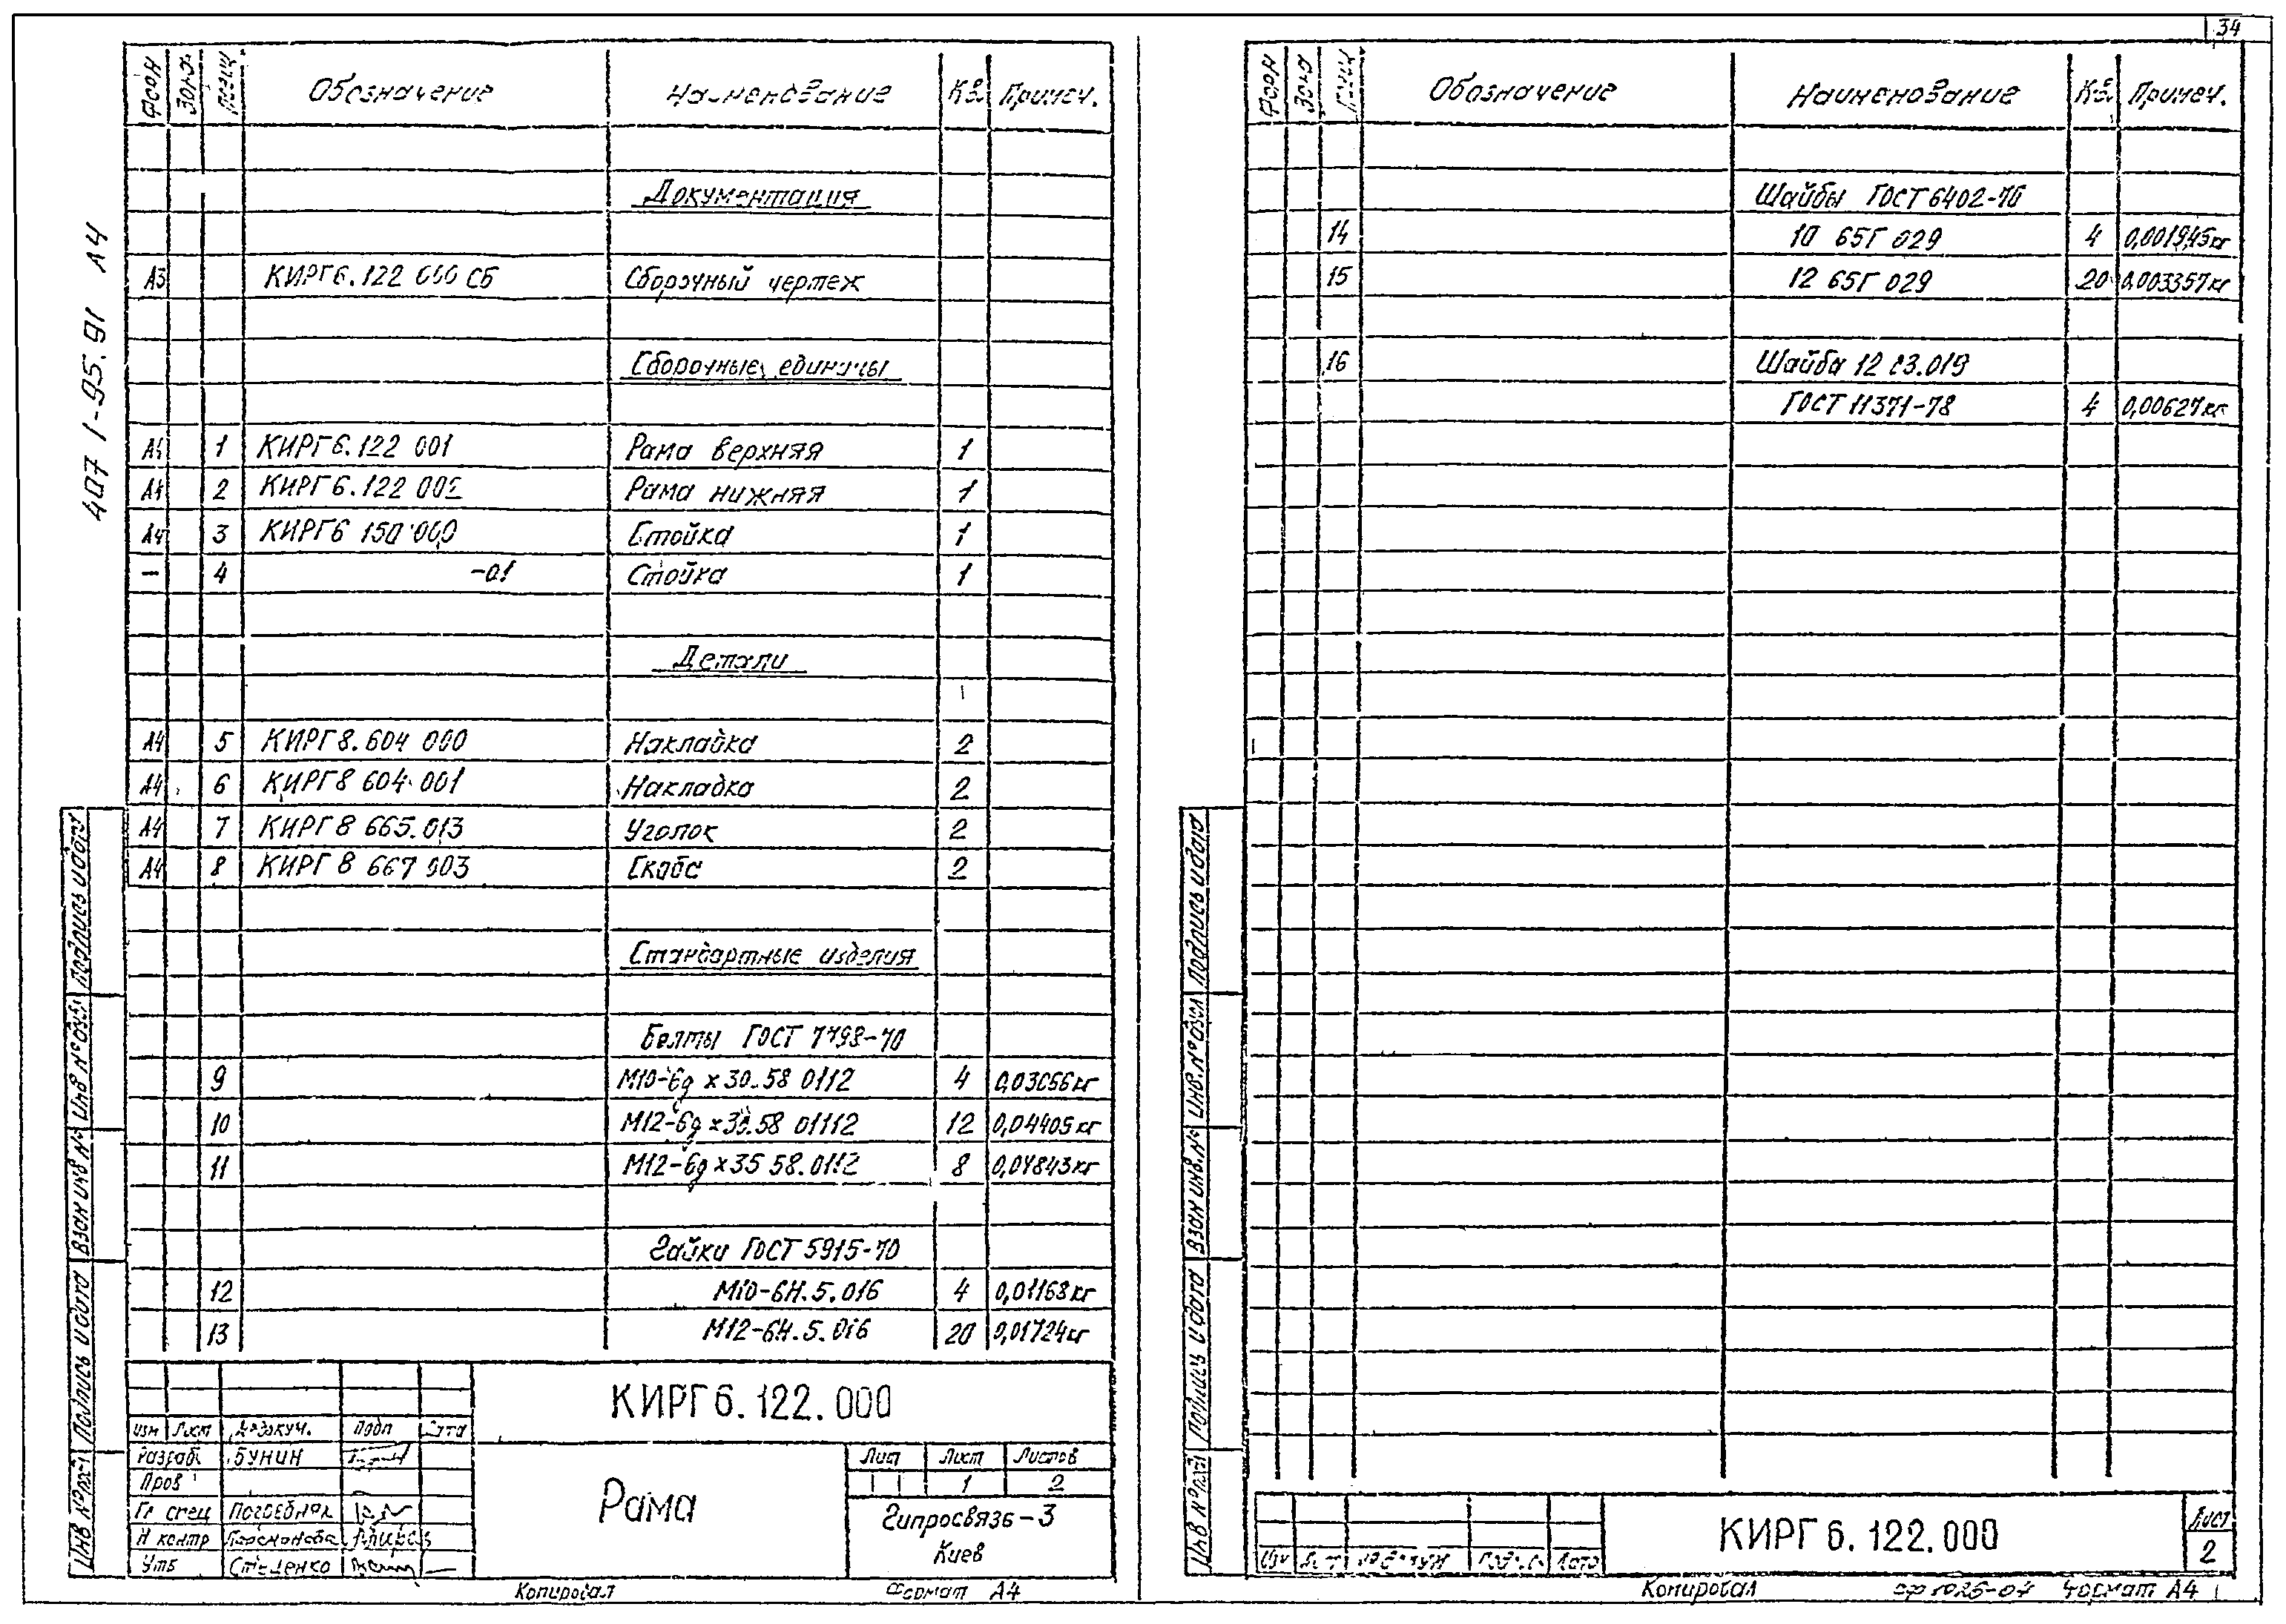 34
407 1-95.91 А4
Форм Зона Позиц Обозначение Наименование Кол Примеч.
Документация
А3 КИРГ6.122 000 СБ Сборочный чертеж
Сборочные единицы
А4 1 КИРГ6.122 001 Рама верхняя 1
А4 2 КИРГ6.122 002 Рама нижняя 1
А4 3 КИРГ6 150 000 Стойка 1
– 4 -01 Стойка 1
Детали
А4 5 КИРГ8.604 000 Накладка 2
А4 6 КИРГ8 604 001 Накладка 2
А4 7 КИРГ8 665.013 Уголок 2
А4 8 КИРГ8 667 003 Скоба 2
Стандартные изделия
Болты ГОСТ 7798-70
9 М10-6g х 30.58 0112 4 0,03056кг
10 М12-6g х30.58 01112 12 0,04405кг
11 М12-6g х35 58.0112 8 0,04843кг
Гайки ГОСТ 5915-70
12 М10-6Н.5.016 4 0,01168кг
13 М12-6Н.5.016 20 0,01724кг
КИРГ6.122.000
Изм Лист № докум. Подп Дата
Разраб БУНИН
Пров
Гл спец Погребняк
Н контр
Утб Стеценко
Рама
Лит Лист Листов
1 2
Гипросвязь-3
Киев
Копировал Формат А4
Инв № подл Подпись и дата Взам инв № Инв № дубл Подпись и дата
Форм Зона Позиц Обозначение Наименование Кол Примеч.
Шайбы ГОСТ 6402-70
14 10 65Г 029 4 0,001945кг
15 12 65Г 029 20 0,003357кг
16 Шайба 12 03.019
ГОСТ 11371-78 4 0,00627кг
Инв № подл Подпись и дата Взам инв. № Инв. № дубл Подпись и дата
Изм Лист № докум Подп. Дата
КИРГ6.122.000
Лист
2
Копировал Формат А4